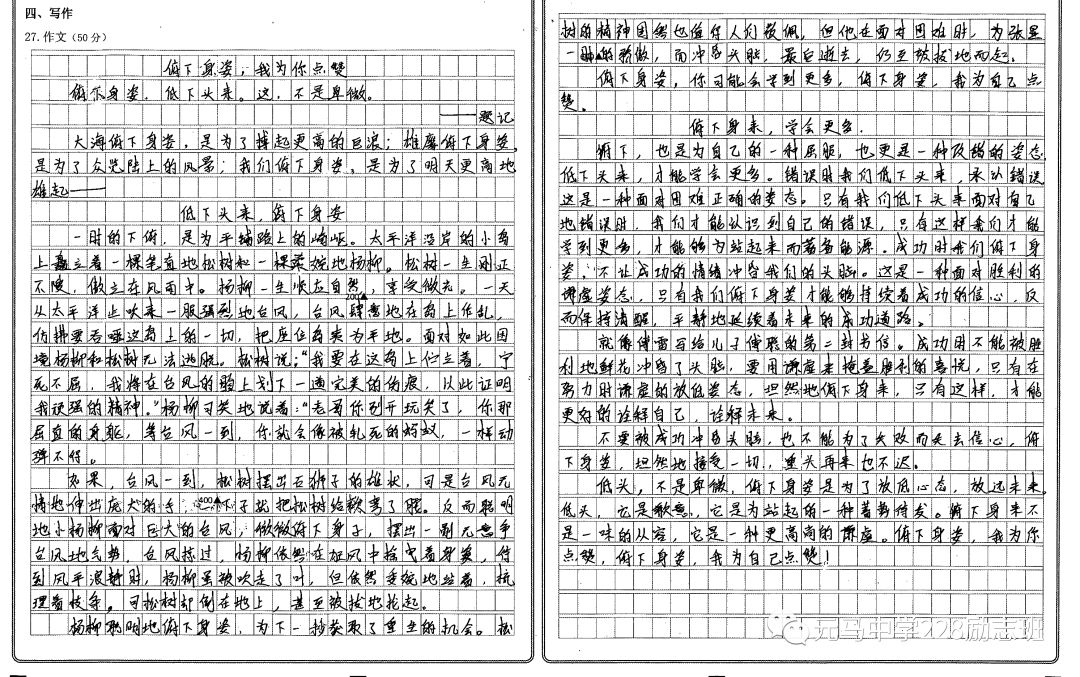 四、写作
27.作文(50分)
俯下身姿,我为你点赞
俯下身姿,低下头来。这,不是卑微。
——题记
大海俯下身姿,是为了掀起更高的巨浪;雄鹰俯下身姿
是为了众览陆上的风景;我们俯下身姿,是为了明天更高地
雄起——
低下头来,俯下身姿
一时的下俯,是为平铺路上的崎岖。太平洋沿岸的小岛
上矗立着一棵笔直地松树和一棵柔婉地杨柳。松树一生刚正
不阿,傲立在风雨中。杨柳一生顺应自然,享受微光。一天
从太平洋上吹来一股强烈地台风,台风肆意地在岛上作乱,
仿拂要吞噬这岛上的一切,把座位岛夷为平地。面对如此困
境杨柳和松树无法逃脱。松树说:“我要在这岛上伫立着,宁
死不屈,我将在台风的脸上划下一道完美的伤痕,以此证明
我顽强的精神。”杨柳可笑地说着:“老哥你别开玩笑了,你那
屈直的身躯,等台风一到,你就会像被乱死的蚂蚁,一样动
弹不得。
如果,台风一到,松树摆出石狮子的雄状,可是台风无
情地伸出庞大的手,一下子就把松树给欺害了腿。反而聪明
地小杨柳面对巨大的台风,微微俯下身子,摆出一副无意争
台风地气势,台风掠过,杨柳依然在旋风中扭守着身姿,待
到风平浪静时,杨柳虽被吹走了叶,但依然委婉地站着,梳
理着枝条。可松树却倒在地上,甚至被拔地抡起。
杨柳聪明地俯下身姿,为下一秒获取了重生的机会。松
树的精神固然也值得人们敬佩,但他在面对困难时,为张显
一时的骄傲,而冲昏头脑,最后逝去,仍至被拔地而起。
俯下身姿,你可能会学到更多,俯下身姿,我为自己点
赞。
俯下身来,学会更多.
俯下,也是为自己的一种屈服,也更是一种改错的姿态
低下头来,才能学会更多。错误时我们低下头来,承认错误
这是一种面对困难正确的姿态。只有我们低下头来面对自己
地错误时,我们才能认识到自己的错误,只有这样我们才能
学到更多,才能够为站起来而蓄备能源。成功时我们俯下身
姿,不让成功的情绪冲昏我们的头脑。这是一种面对胜利的
谦虚姿态,只有我们俯下身姿才能够持续着成功的信心,反
而保持清醒,平静地延续着未来的成功道路。
就像傅雷写给儿子傅聪的第二封书信。成功时不能被胜
利地鲜花冲昏了头脑,要用谦虚来掩盖胜利的喜悦,只有在
努力时谦虚的放低姿态,坦然地俯下身来,只有这样,才能
更好的诠释自己,诠释未来。
不要被成功冲昏头脑,也不能为了失败而失去信心,俯
下身姿,坦然地接受一切,重头再来也不迟。
低头,不是卑微,俯下身姿是为了放低心态,放远未来。
低头,它是歉意,它是为站起的一种蓄势待发。俯下身来不
是一味的从容,它是一种更高尚的谦虚。俯下身姿,我为你
点赞,俯下身姿,我为自己点赞!
200▲
400▲
元马中学228励志班